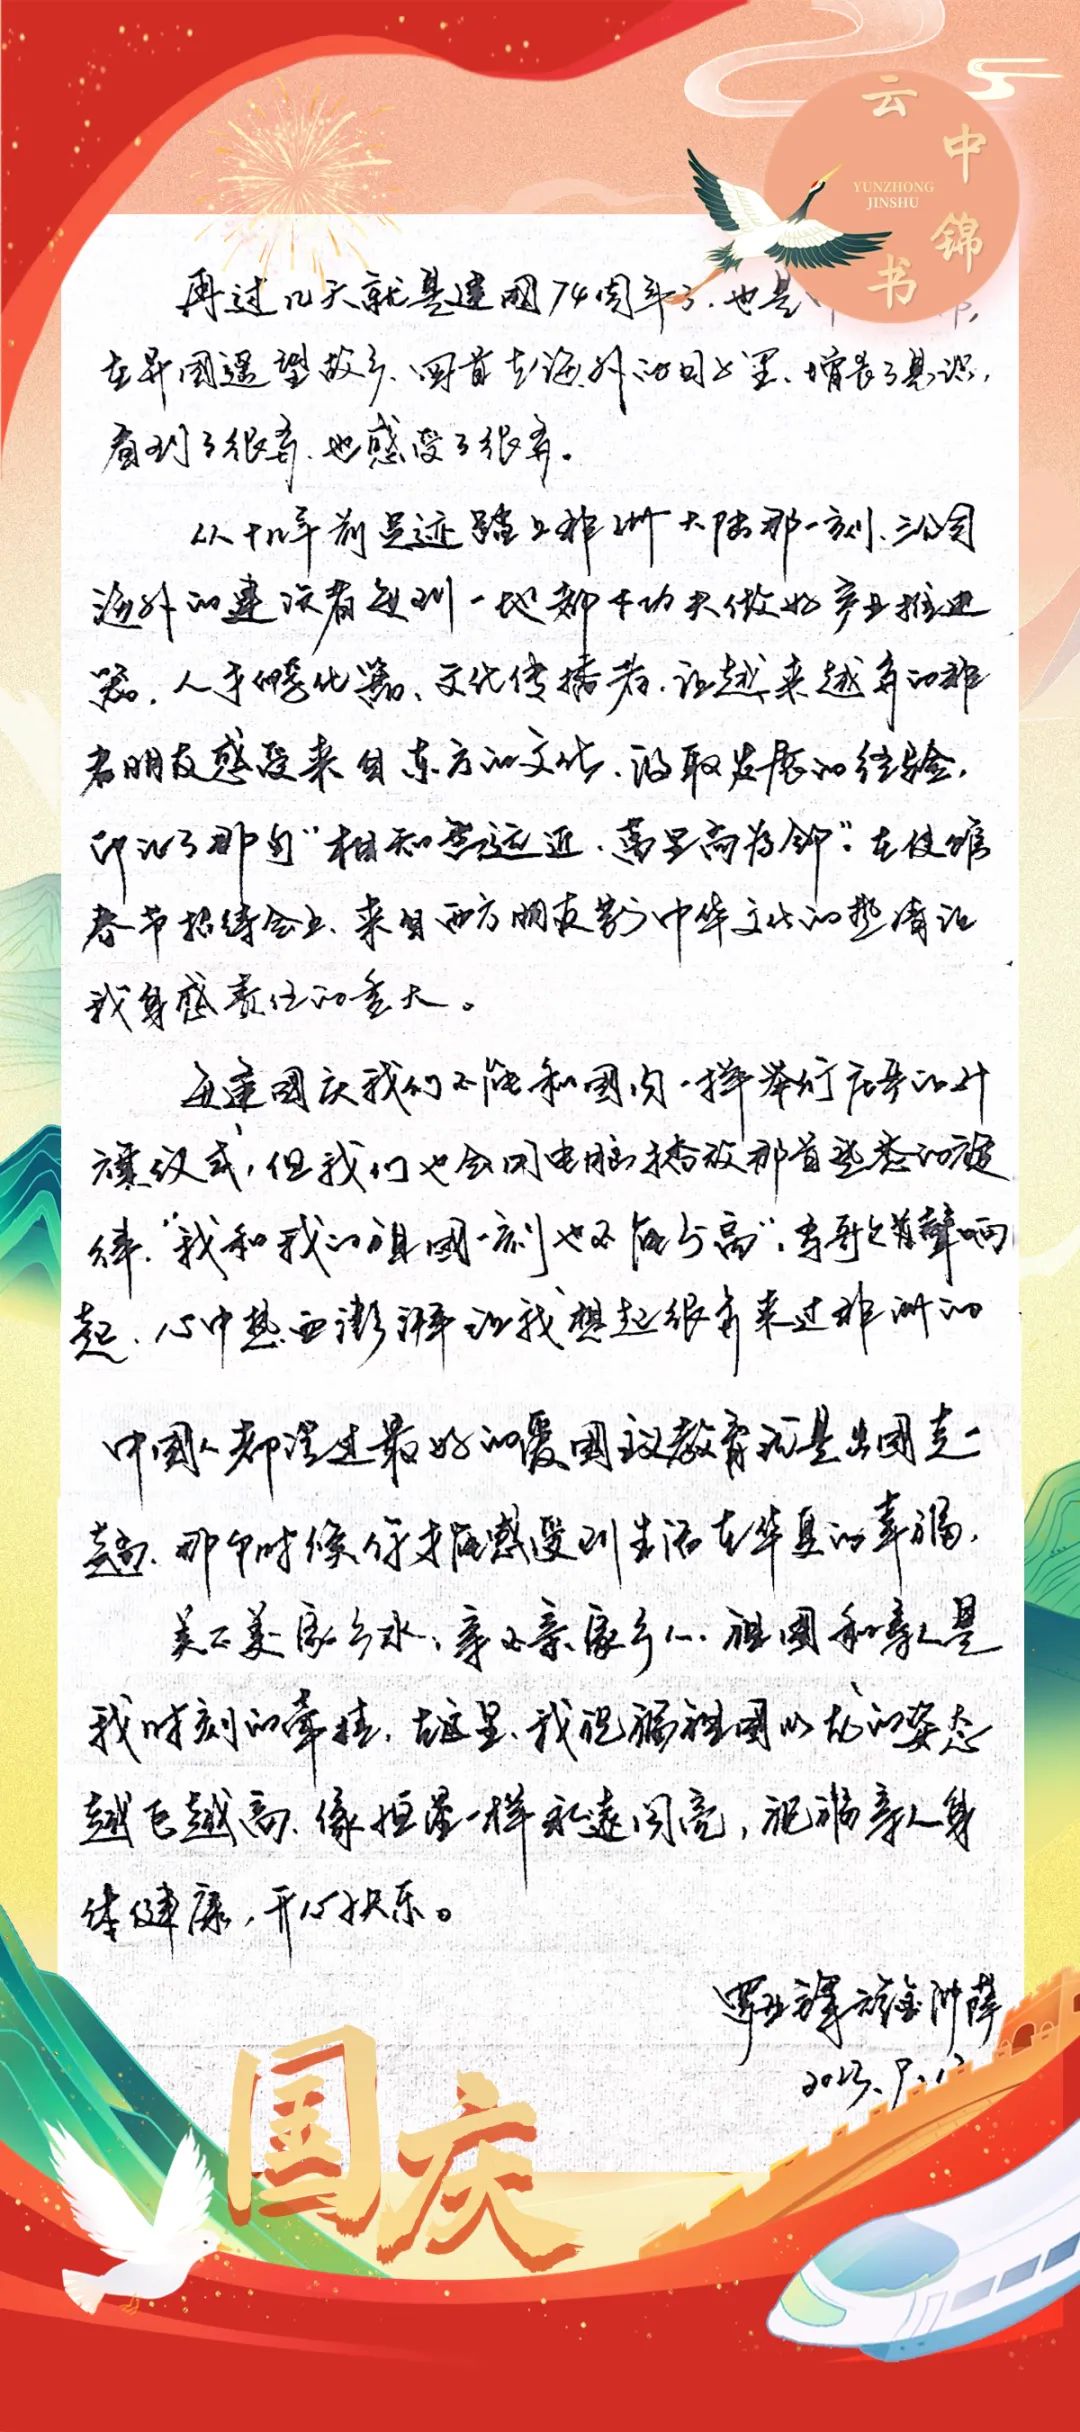 云中锦书
YUNZHONG
JINSHU
再过几天就是建国74周年了、也是中
在异国遥望故乡、回首在海外的日子里、增长了见识，
看到了很多、也感受了很多。
从十几年前足迹踏上非洲大陆那一刻、三公司
海外的建设者每到一地都下功夫做好产业推进
器、人才孵化器、文化传播者、让越来越多的非
洲朋友感受来自东方的文化、汲取发展的经验，
印证了那句“相知无远近、万里尚为邻”。在使馆
春节招待会上、来自西方朋友对中华文化的热情让
我身感责任的重大。
每逢国庆我们不能和国内一样举行庄严的升
旗仪式，但我们也会用电脑播放那首熟悉的旋
律、“我和我的祖国一刻也不能分离”，当歌声响
起、心中热血澎湃让我想起很多来过非洲的
中国人都说过最好的爱国主义教育就是出国走一
趟、那个时候你才能感受到生活在华夏的幸福，
美不美家乡水，亲不亲家乡人、祖国和亲人是
我时刻的牵挂，在这里、我祝福祖国以龙的姿态
越飞越高、像恒星一样永远闪亮，祝福亲人身
体健康，开心快乐。
2023.9.
国庆